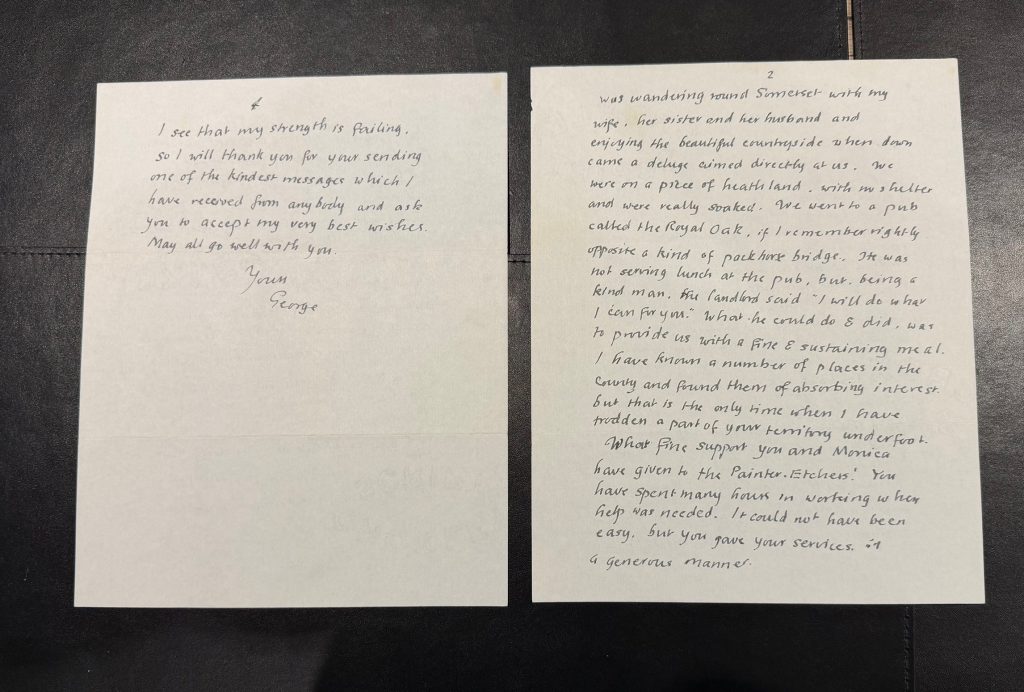 4
I see that my strength is failing,
so I will thank you for your sending
one of the kindest messages which I
have received from anybody and ask
you to accept my very best wishes.
May all go well with you.
Yours
George
2
was wandering round Somerset with my
wife, her sister and her husband and
enjoying the beautiful countryside when down
came a deluge aimed directly at us. We
were on a piece of heathland, with no shelter
and were really soaked. We went to a pub
called the Royal Oak, if I remember rightly
opposite a kind of packhorse bridge. It was
not serving lunch at the pub, but, being a
kind man, the landlord said "I will do what
I can for you." What he could do & did, was
to provide us with a fine & sustaining meal.
I have known a number of places in the
County and found them of absorbing interest
but that is the only time when I have
trodden a part of your territory underfoot.
What fine support you and Monica
have given to the Painter-Etchers! You
have spent many hours in working when
help was needed. It could not have been
easy, but you gave your services in
a generous manner.